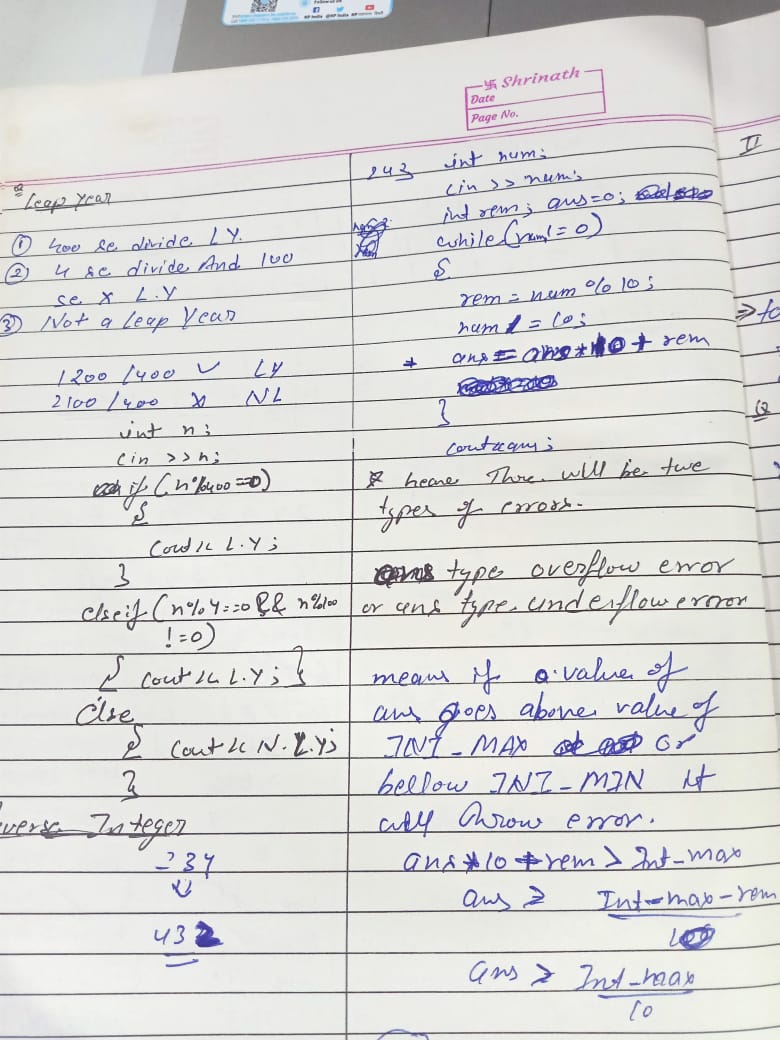 Follow us on
HP India @HP India
卐 Shrinath
Date
Page No.
Leap Year
① 400 se divide L Y.
② 4 se divide And 100
se X L.Y
③ Not a Leap Year
1200 / 400 ✓ LY
2100 / 400 X NL
int n;
cin >> n;
if (n%400==0)
{
Cout << L.Y;
}
elseif (n%4==0 && n%100
!=0)
{ cout << L.Y; }
else
{ cout << N.L.Y;
}
verse Integer
234
↓
432
243 int num;
cin >> num;
int rem; ans=0;
while (num!=0)
{
rem = num % 10;
num /= 10;
* ans = ans * 10 + rem
}
cout<<ans;
* heare Thre will be two
types of errors.
type overflow error
or ans type underflow eroror
means if a value of
ans goes above value of
INI_MAX or
bellow INI_MIN it
will throw error.
ans*10 + rem > Int_max
ans > Int_max - rem
10
ans > Int_max
10
II
⇒ to
Q